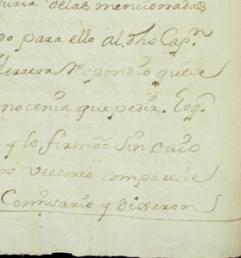 uria delas mencionadas
do para ello al dho Capn
Herrera Respondio que se
nocenia que pedir. Esq
y lo firmo = Sin cuio
os Veedores comparecie
Comisario y dixeron